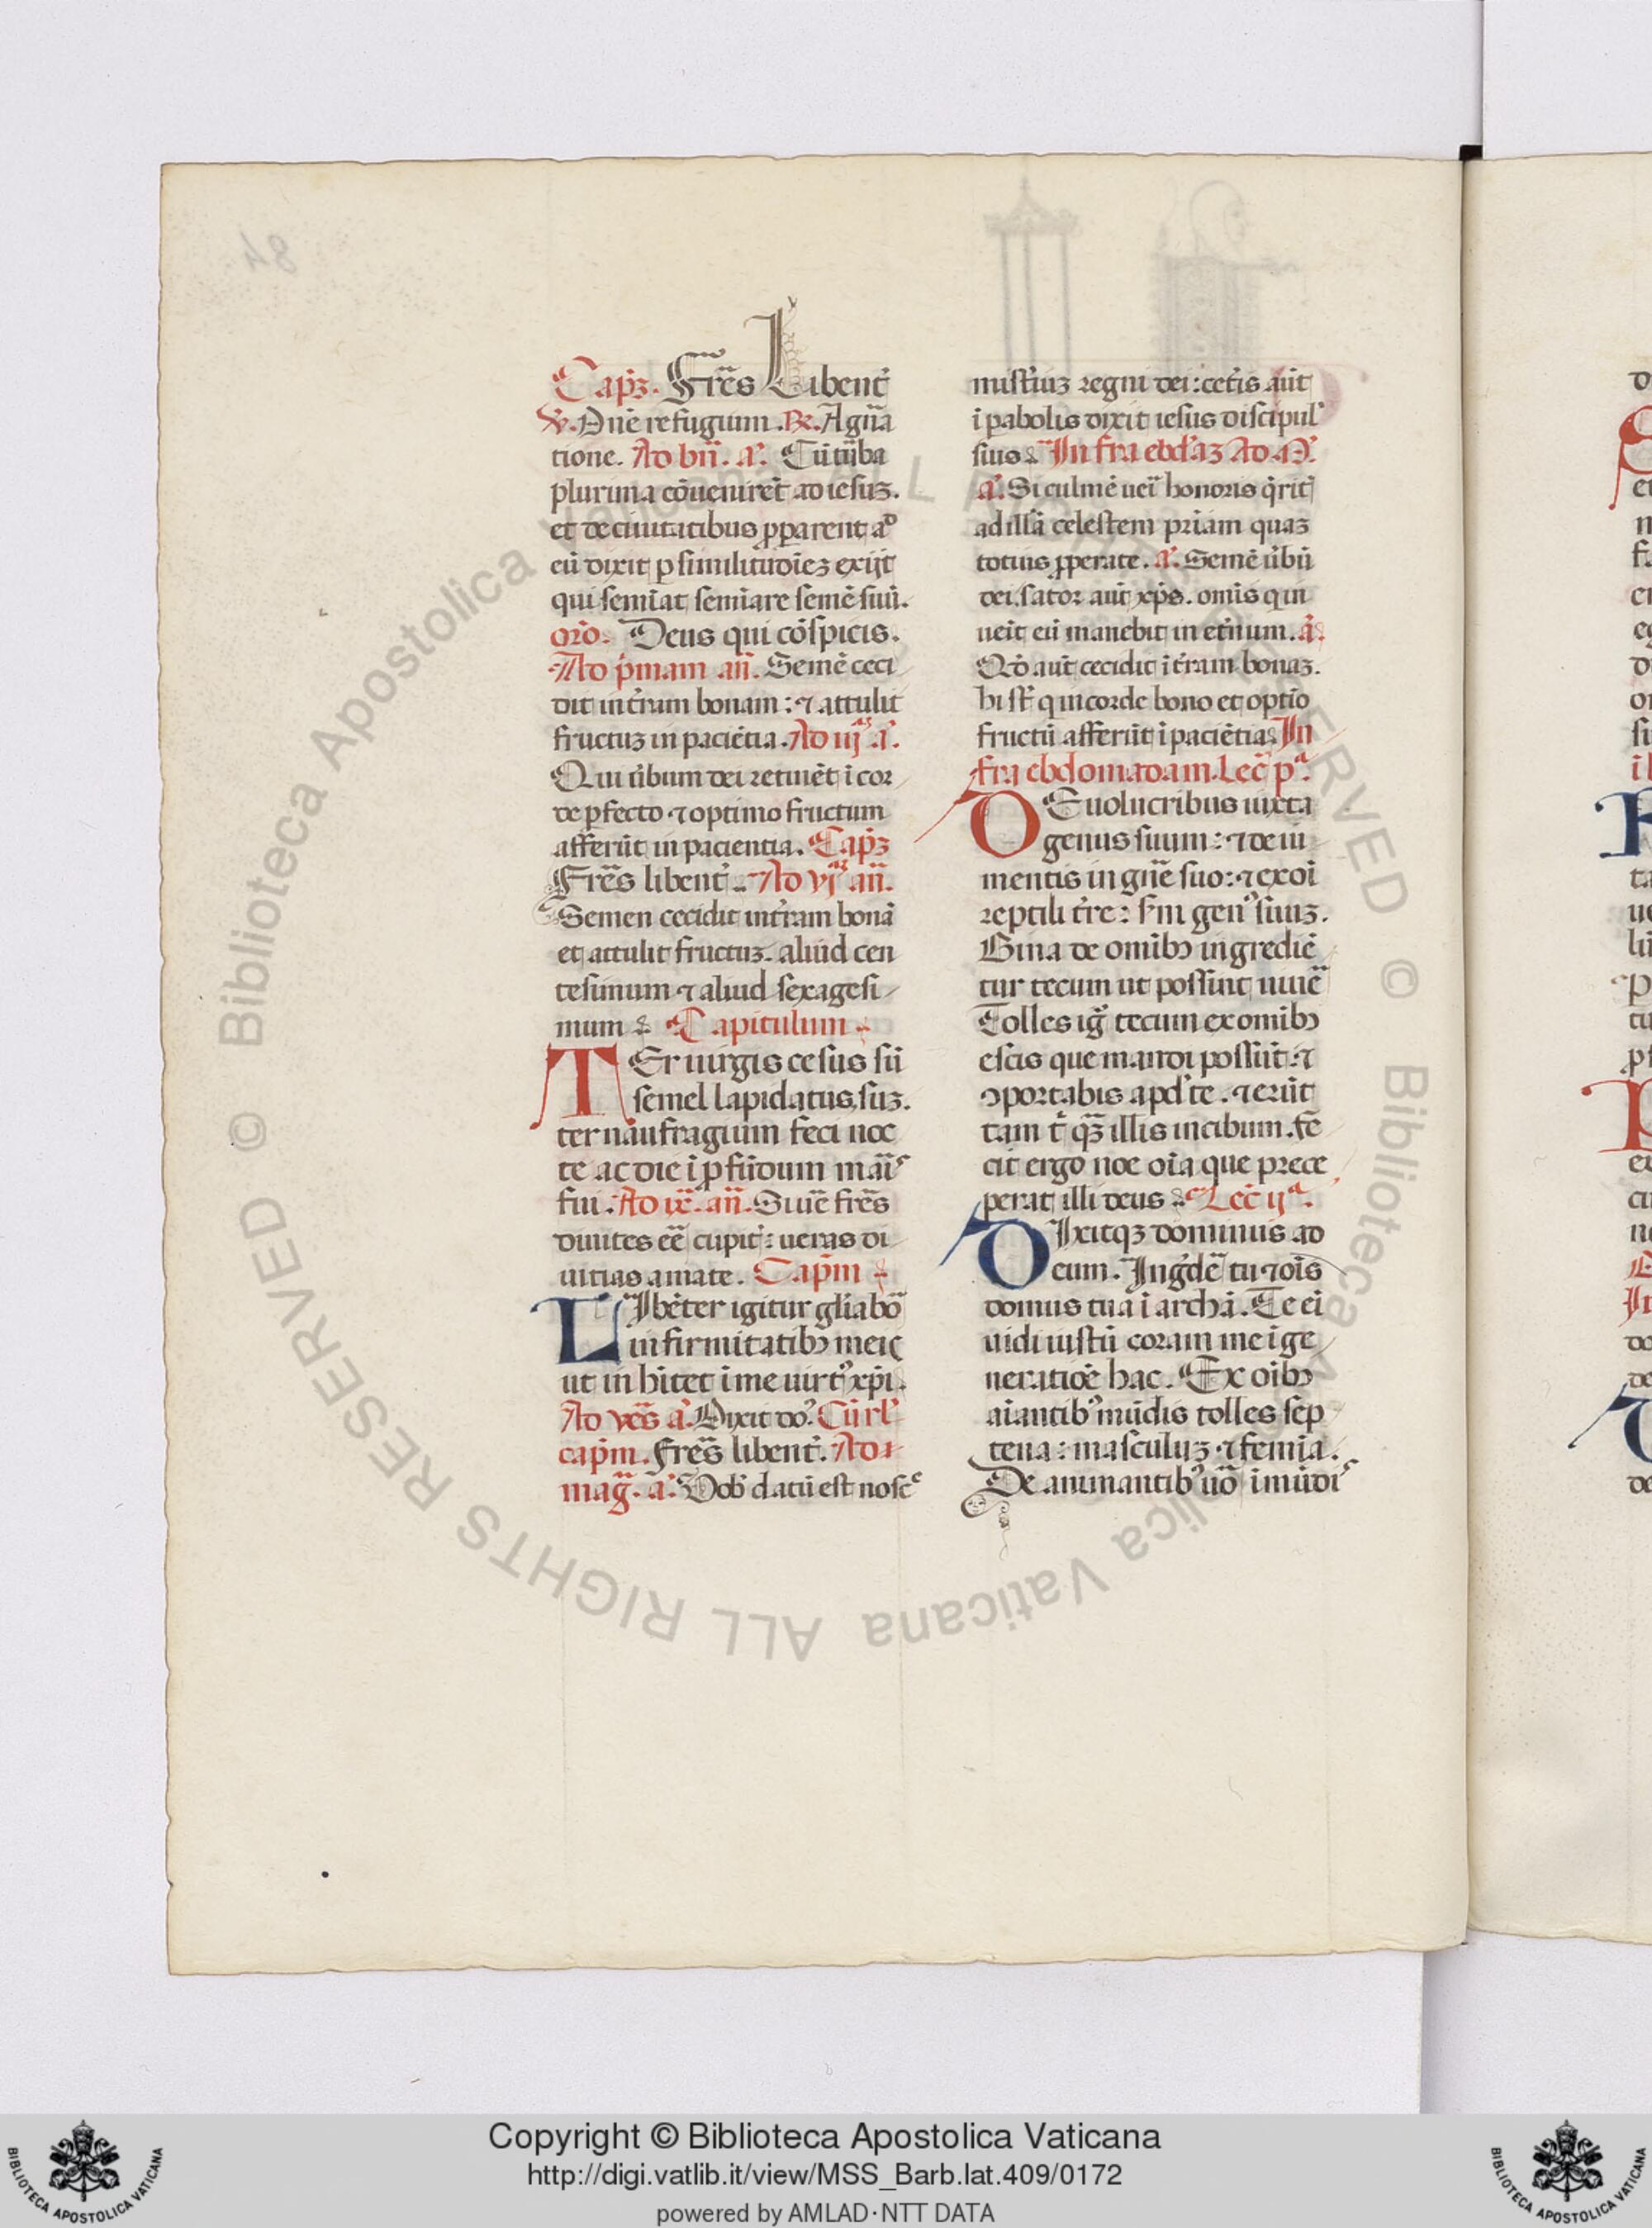 Cap̃ꝫ. Fr̃es Libent᷑
℣. Dñe refugium. ℞. A gñ̃a
tione. Ad bñ. a᷑. Cũ tũba
plurima cõueniret᷑ ad iesuꝫ.
et de ciuitatibus ꝓparent aᵈ
eũ dixit ꝑ similitudiẽꝫ exijt
qui semĩat semĩare semẽ suũ.
or̃o. Deus qui cõspicis.
Ad p̃mam an̄. Semẽ ceci
dit in t᷑ram bonam: ⁊ attulit
fructuꝫ in paciẽtia. Ad iijᵃᵐ a᷑.
Qui u᷑bum dei retinẽt ĩ cor
de ꝑfecto ⁊ optimo fructum
afferũt in pacientia. Cap̃ꝫ
Fr̃es libent᷑. Ad vjᵃᵐ an̄.
Semen cecidit in t᷑ram bonã
et attulit fructuꝫ. aliud cen
tesimum ⁊ aliud sexagesi
mum Capitulum
TEr uirgis cesus sũ
semel lapidatus suꝫ.
ter naufragium feci noc
te ac die ĩ ꝓfũdum mar̃ꝭ
fui. Ad ix̃. an̄. Si uĩc̃ fr̃es
diuites eẽ cupit᷑: ueras di
uitias amate. Cap̃m
LIbẽter igitur gl̃iabor̃
in firmitatibꝫ meiꝭ
ut in h̃itet ĩ me uirt᷒ xp̃i.
Ad ves̃ a᷑. Dixit do᷑. Cũ rl᷑
cap̃m. Fr̃es libent᷑. Ad
mag̃. a᷑. Uob᷑ datũ est nosc͛
mist᷑iuꝫ regni dei: cet᷑is aũt
ĩ ꝑabolis dixit iesus discipul᷒
suis Infra ebd᷑aꝫ Ad M᷑.
a᷑. Si culmẽ uer̃i honoris q̃rit᷑
ad illã celestem pr̃iam quaꝫ
totius ꝓperate. a᷑. Semẽ u᷑bũ
dei. sator aũt xp̃s. omĩs q in
ueit eũ manebit in et᷑num. a᷑.
Qd᷑ aũt cecidit ĩ t᷑ram bonaꝫ.
hi st᷑ q in corde bono et optĩo
fructũ afferũt ĩ paciẽtia. In
fra ebdomadam. Lec̃ pᵃ.
DE uolucribus iuxta
genus suum: ⁊ de iu
mentis in gñe suo: ⁊ ex oĩ
reptili t᷑re: sm̃ gen᷒ suuꝫ.
Bina de omĩbꝫ ingrediẽ
tur tecum ut possint uiuer̃
Tolles ig̃ tecum ex omĩbꝫ
escis que mandi possũt: ⁊
ↄportabis apd᷑ te. ⁊ erũt
tam t᷑ qꝫ̃ illis in cibum. fe
cit ergo noe oĩa que prece
perat illi deus Lec̃ ijᵃ.
DIxitqꝫ dominus ad
eum. Ing᷑dẽ tu ⁊ oĩs
domus tua ĩ archã. Te ei
uidi iustũ coram me ĩ ge
neratiõe hac. Ex oĩbꝫ
aĩantib᷒ mũdis tolles sep
tena: masculuꝫ ⁊ femĩa.
De animantib᷒ uõ ĩmũdiꝭ
Copyright © Biblioteca Apostolica Vaticana
http://digi.vatlib.it/view/MSS_Barb.lat.409/0172
powered by AMLAD·NTT DATA